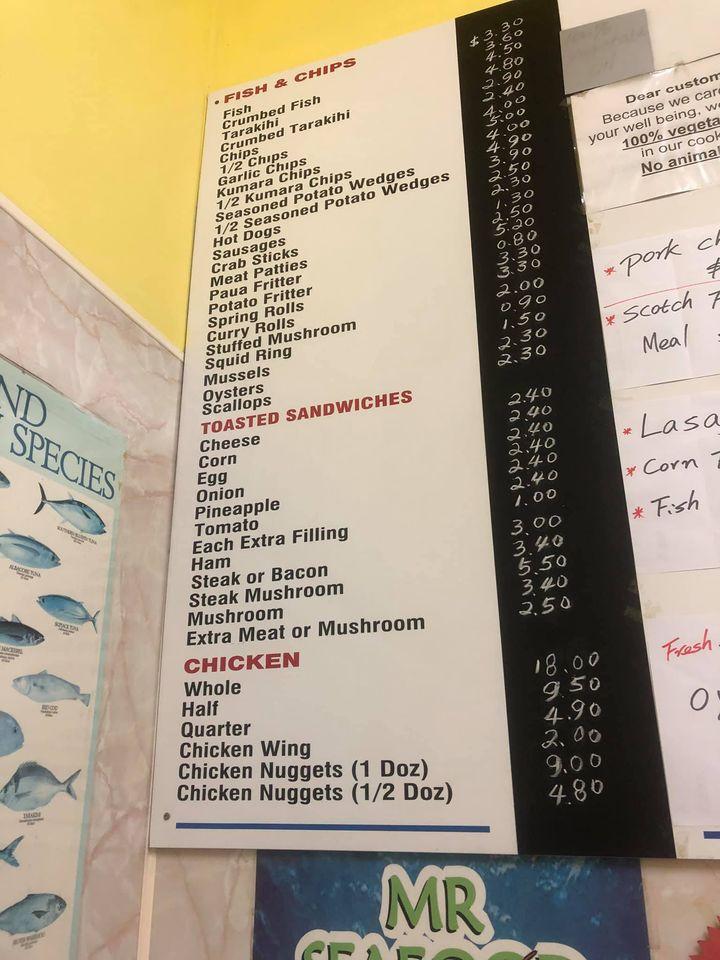 FISH & CHIPS
Fish $3.30
Crumbed Fish 3.60
Tarakihi 4.50
Crumbed Tarakihi 4.80
Chips 2.90
1/2 Chips 2.40
Garlic Chips 4.00
Kumara Chips 5.00
1/2 Kumara Chips 4.00
Seasoned Potato Wedges 4.90
1/2 Seasoned Potato Wedges 3.90
Hot Dogs 2.50
Sausages 2.30
Crab Sticks 1.30
Meat Patties 2.50
Paua Fritter 5.20
Potato Fritter 0.80
Spring Rolls 3.30
Curry Rolls 3.30
Stuffed Mushroom 2.00
Squid Ring 0.90
Mussels 1.50
Oysters 2.30
Scallops 2.30
TOASTED SANDWICHES
Cheese 2.40
Corn 2.40
Egg 2.40
Onion 2.40
Pineapple 2.40
Tomato 2.40
Each Extra Filling 1.00
Ham 3.00
Steak or Bacon 3.40
Steak Mushroom 5.50
Mushroom 3.40
Extra Meat or Mushroom 2.50
CHICKEN
Whole 18.00
Half 9.50
Quarter 4.90
Chicken Wing 2.00
Chicken Nuggets (1 Doz) 9.00
Chicken Nuggets (1/2 Doz) 4.80
MR
SEAFOOD
Dear custom
Because we care
your well being, we
100% vegeta
in our cook
No anima
* Pork ch
$
* Scotch F
Meal
* Lasa
* Corn
* Fish
Fresh
ND
SPECIES
SOUTHERN BLUEFIN TUNA
ALBACORE TUNA
SKIPJACK TUNA
MACKEREL
RED COD
TARAKIHI